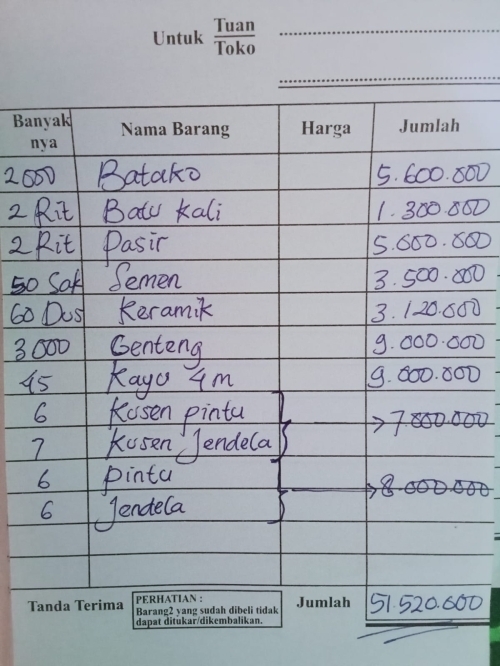 Untuk Tuan
Toko
Banyak nya Nama Barang Harga Jumlah
2000 Batako 5.600.000
2 Rit Batu kali 1.300.000
2 Rit Pasir 5.000.000
50 Sak Semen 3.500.000
60 Dus Keramik 3.120.000
3000 Genteng 9.000.000
45 Kayu 4 m 9.000.000
6 Kusen pintu 7.000.000
7 Kusen Jendela
6 Pintu 8.000.000
6 Jendela
Tanda Terima PERHATIAN : Jumlah 51.520.000
Barang2 yang sudah dibeli tidak
dapat ditukar/dikembalikan.